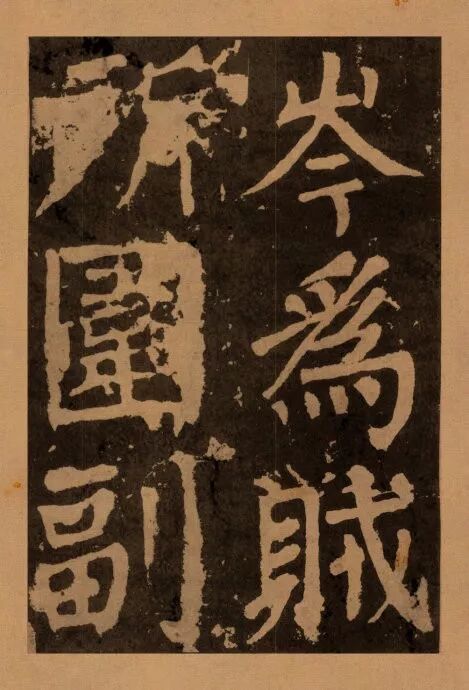 岑為賊
所圍副